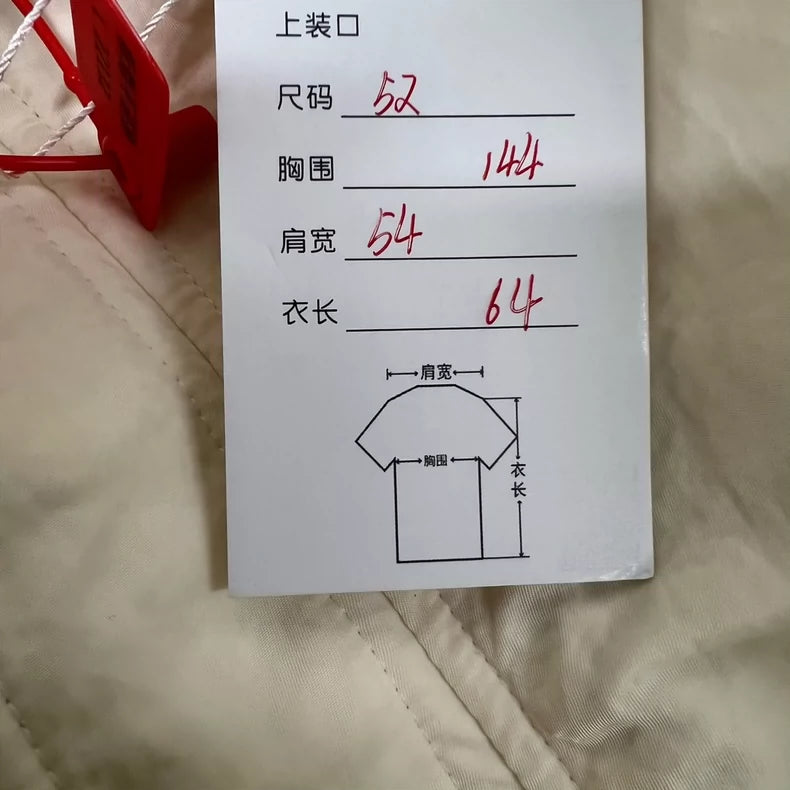 上装口
尺码 52
胸围 144
肩宽 54
衣长 64
肩宽
胸围
衣长